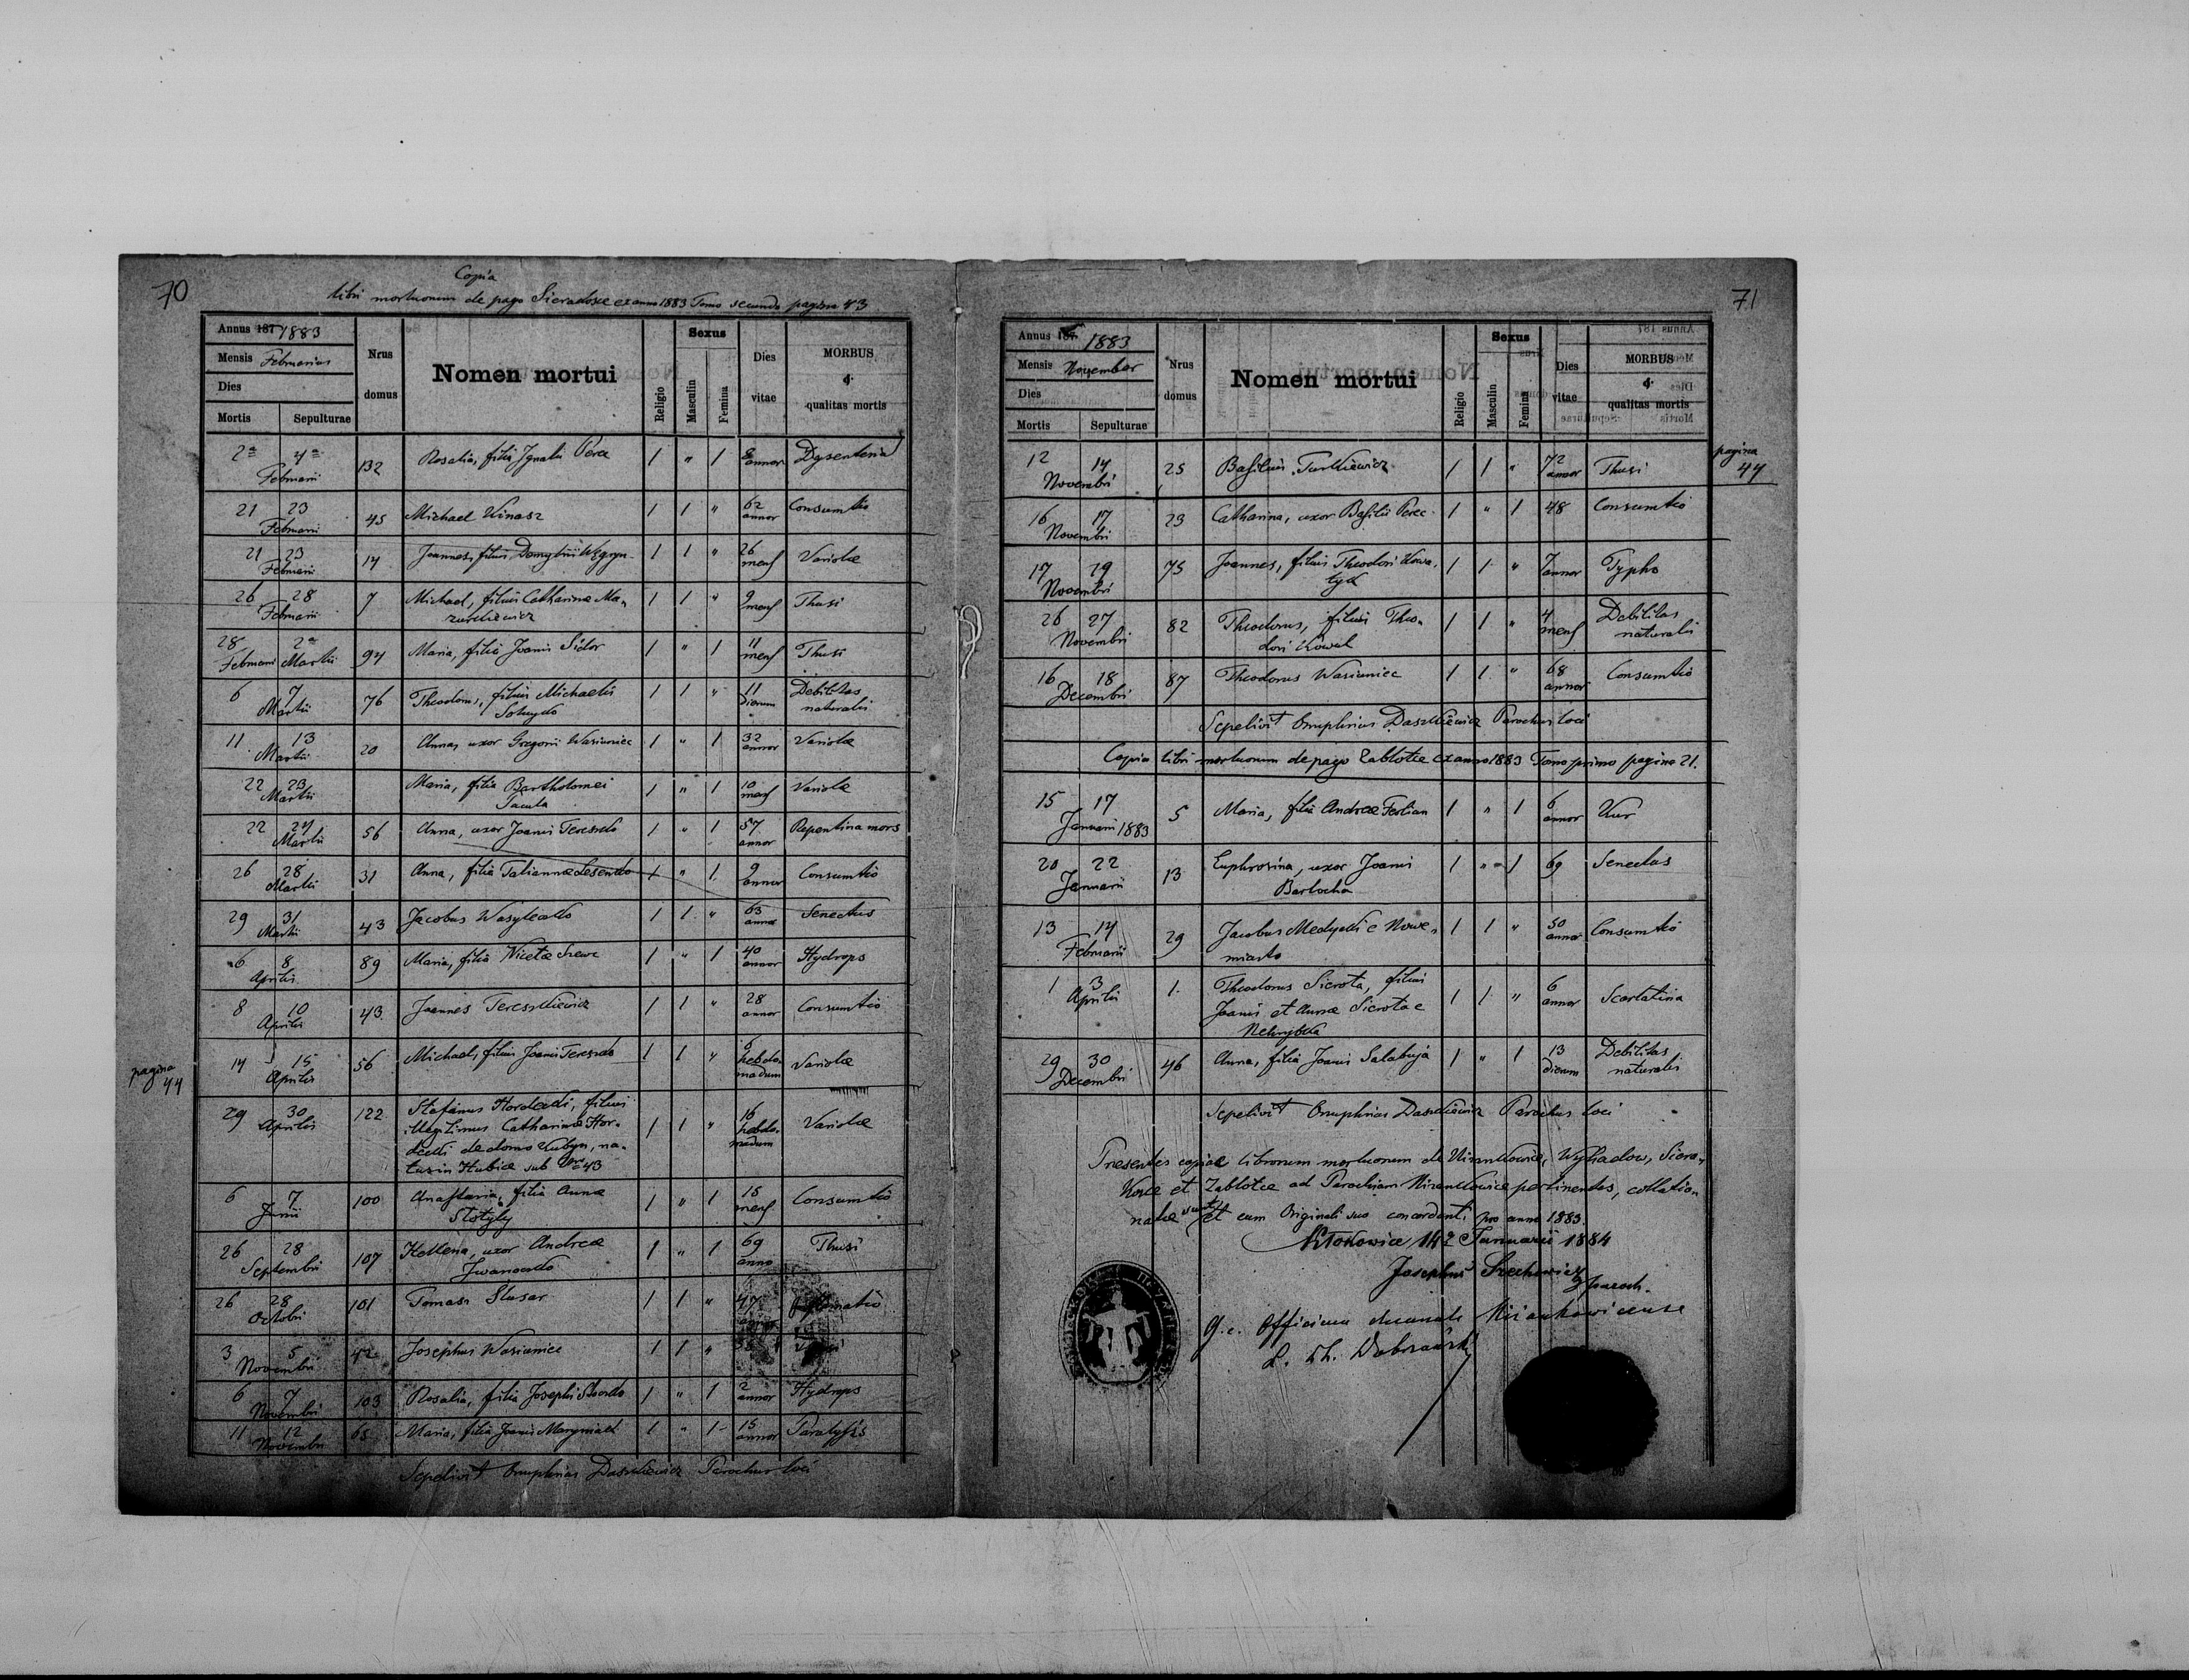 70
Copia
libri mortuorum de pago Sierakosce ex anno 1883 Tomo secundo pagina 43
Annus 187 1883
Mensis Februarius
Dies
Mortis Sepulturae
Nrus domus
Nomen mortui
Religio
Sexus
Masculin
Femina
Dies vitae
MORBUS
et
qualitas mortis
2a 4a Februarii 132 Rosalia, filia Ignatii Perec 1 " 1 8 annor Dysenteria
21 23 Februarii 45 Michael Kinasz 1 1 " 62 annor Consumtio
21 23 Februarii 14 Joannes, filius Demytrii Węgryn 1 1 " 26 mens Variolae
26 28 Februarii 7 Michael, filius Catharinae Ma-
zurkiewicz 1 1 " 9 mens Thusi
28 Februarii 2a Martii 94 Maria, filia Joannis Sidor 1 " 1 11 mens Thusi
6 7 Martii 76 Theodorus, filius Michaelis
1 1 " 11 dierum Debilitas naturalis
11 13 Martii 20 Anna, uxor Gregorii Wasiuniec 1 " 1 32 annor Variolae
22 23 Martii Maria, filia Bartholomei
Pacula 1 " 1 10 mens Variolae
22 24 Martii 56 Anna, uxor Joannis Tereszko 1 " 1 57 annor Repentina mors
26 28 Martii 31 Anna, filia Tatiannae Lesenko 1 " 1 9 annor Consumtio
29 31 Martii 43 Jacobus Wasylecko 1 1 " 63 annor Senectus
6 8 Aprilis 89 Maria, filia Nicetae Szewc 1 " 1 40 annor Hydrops
8 10 Aprilis 43 Joannes Tereszkiewicz 1 1 " 28 annor Consumtio
pagina 44
14 15 Aprilis 56 Michael, filius Joannis Tereszko 1 1 " hebdomadum Variolae
29 30 Aprilis 122 Stefanus Hordecki, filius
illegitimus Catharinae Hor-
decki de domo Kubyn, na-
tus in Hubice sub Nro 43 1 1 " 16 hebdomadum Variolae
6 7 Junii 100 Anastasia, filia Annae
1 " 1 15 mens Consumtio
26 28 Septembri 107 Hellena, uxor Andreae
Iwanecko 1 " 1 69 anno Thusi
26 28 Octobri 101 Tomasz Slusar 1 1 " 47 annor
3 5 Novembri 42 Josephus Wasiuniec 1 1 "
6 7 Novembri 103 Rosalia, filia Josephi 1 " 1 2 annor Hydrops
11 12 Novembri 65 Maria, filia Joannis Maryniak 1 " 1 15 annor Paralysis
Sepelivit Onuphrius Daszkiewicz Parochus loci
71
Annus 187 1883
Mensis November
Dies
Mortis Sepulturae
Nrus domus
Nomen mortui
Religio
Sexus
Masculin
Femina
Dies vitae
MORBUS
et
qualitas mortis
pagina 44
12 14 Novembri 25 Basilius Turkiewicz 1 1 " 72 annor Thusi
16 17 Novembri 23 Catharina, uxor Basilii Perec 1 " 1 48 Consumtio
17 19 Novembri 75 Joannes, filius Theodori Kowa-
lyk 1 1 " 7 annor Typho
26 27 Novembri 82 Theodorus, filius Theo-
dori Kowal 1 1 " 4 mens Debilitas naturalis
16 18 Decembri 87 Theodorus Wasiuniec 1 1 " 68 annor Consumtio
Sepelivit Onuphrius Daszkiewicz Parochus loci
Copia libri mortuorum de pago Zablotce ex anno 1883 Tomo primo pagina 21.
15 17 Januarii 1883 5 Maria, filia Andreae Ferlian 1 " 1 6 annor Kur
20 22 Januarii 13 Euphrosina, uxor Joannis
Barlocha 1 " 1 69 Senectus
13 14 Februarii 29 Jacobus Medycki e Nowe-
miasto 1 1 " 50 annor Consumtio
1 3 Aprilis 1. Theodorus Sierota, filius
Joannis et Annae Sierota e
Nehrybka 1 1 " 6 annor Scarlatina
29 30 Decembri 46 Anna, filia Joannis Salabuja 1 " 1 13 dierum Debilitas naturalis
Sepelivit Onuphrius Daszkiewicz Parochus loci
Presentes copiae librorum mortuorum de Nizankowice, Wyhadow, Siera-
kosce et Zablotce ad Parochiam Nizankowice pertinentes, collatio-
natae sunt et cum Originali suo concordant pro anno 1883.
Kłokowice 14a Januarii 1884
Josephus paroch.
G. c. Officium decanale Nizankowicense